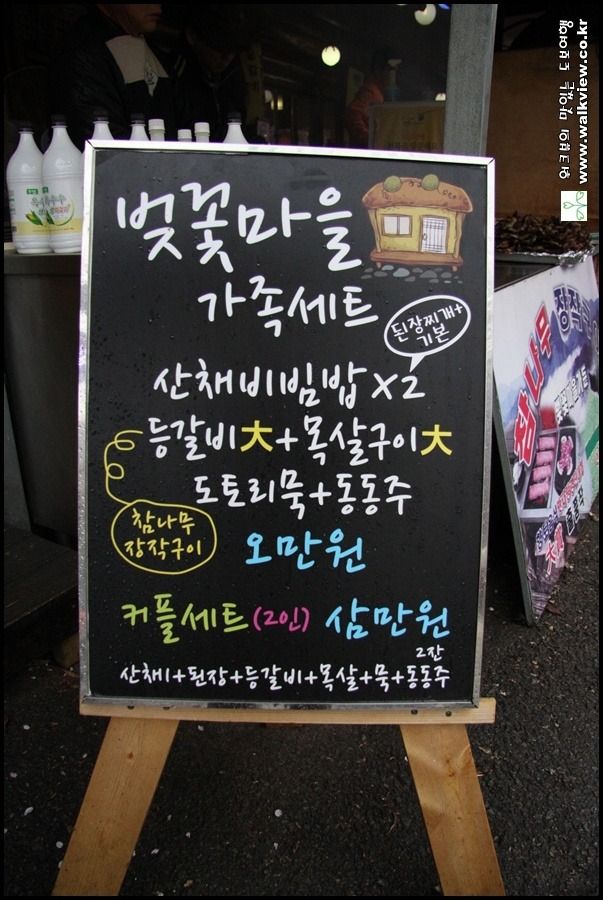 벚꽃마을
가족세트
된장찌개+
기본
산채비빔밥 x2
등갈비大+목살구이大
도토리묵+동동주
참나무
장작구이
오만원
커플세트(2인) 삼만원
2잔
산채1+된장+등갈비+목살+묵+동동주
www.walkview.co.kr
참나무